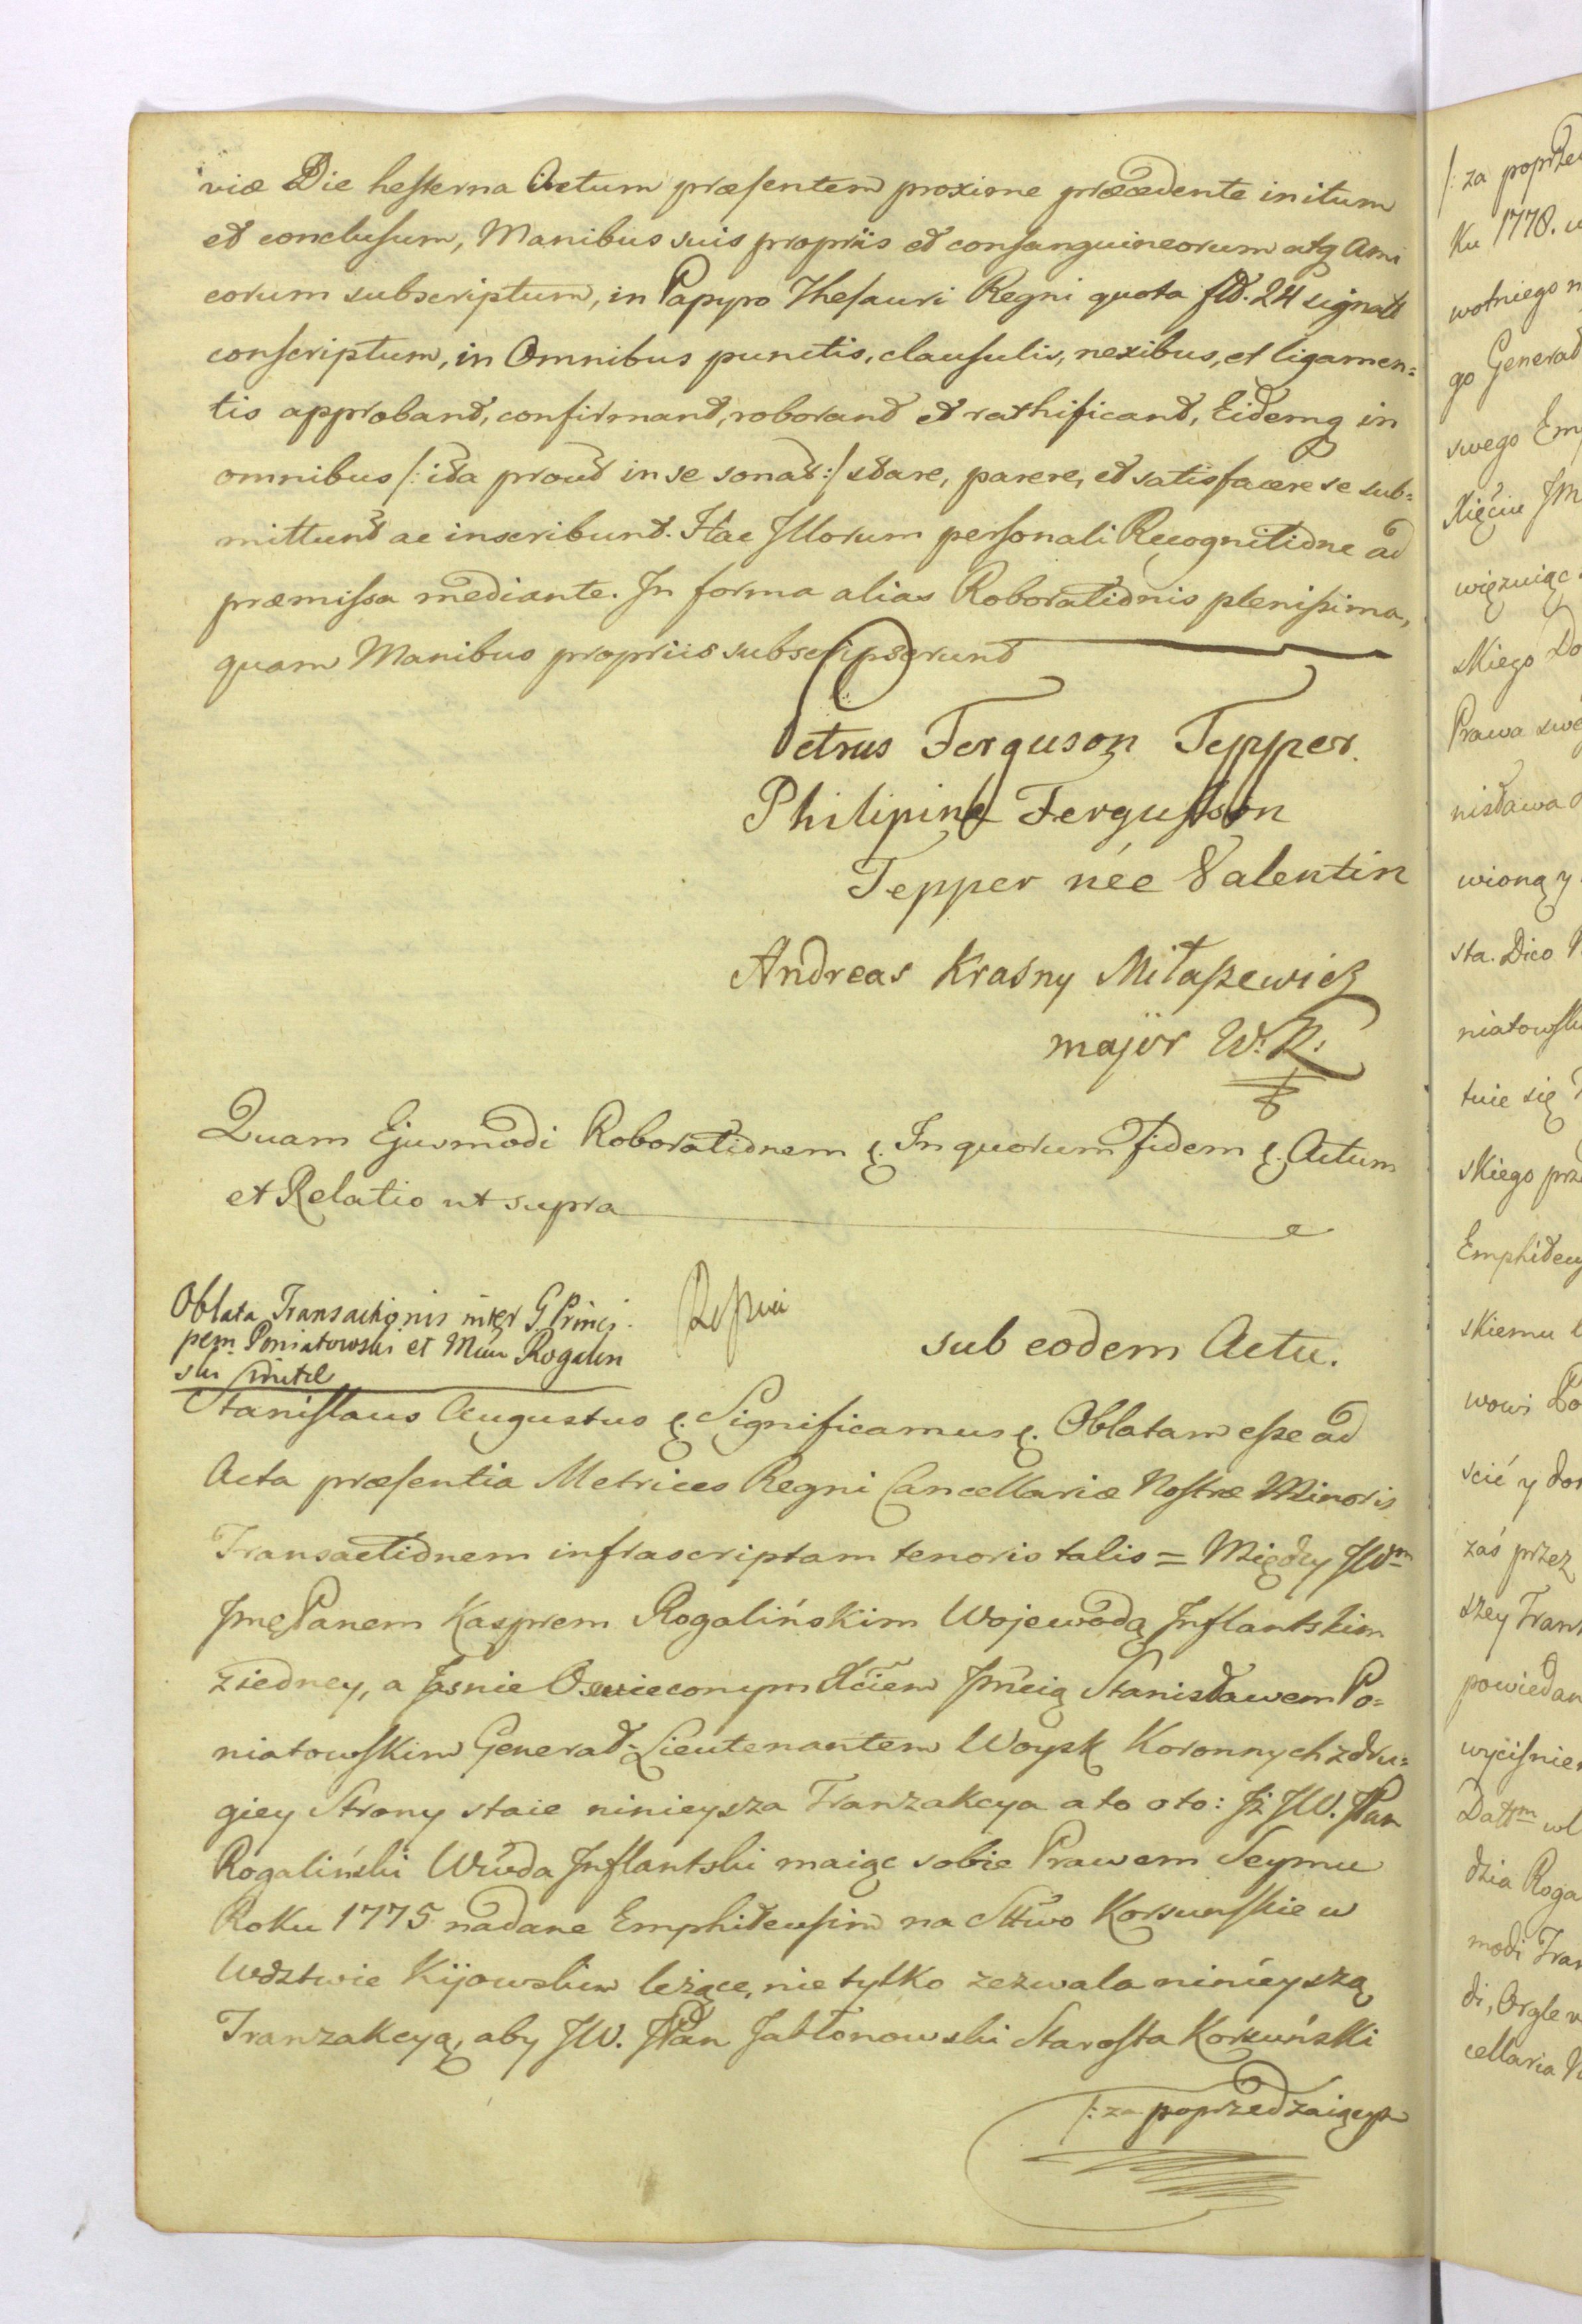 viæ Die hesterna Actum præsentem proxime præcedente initum
et conclusum, Manibus suis propriis et consanguineorum atq Ami
corum subscriptum, in Papyro Thesauri Regni quota fld. 24 signat
conscriptum, in Omnibus punctis, clausulis, nexibus, et ligamen=
tis approbant, confirmant, roborant et rathificant, Eidemq in
omnibus /: ita prout in se sonat :/ stare, parere, et satisfacere se sub=
mittunt ac inscribunt. Hac Illorum personali Recognitione ad
præmissa mediante. In forma alias Roborationis plenissima,
quam Manibus propriis subscripserunt
Petrus Ferguson Tepper.
Philipina Fergusson
Tepper née Valentin
Andreas Krasny Miłaszewicz
major W. K:
Quam Ejusmodi Roborationem &. In quorum fidem &. Actum
et Relatio ut supra
Oblata Transactionis inter G. Princi
pem Poniatowski et Rogalin
ski
sub eodem Actu.
Stanislaus Augustus &. Significamus &. Oblatam esse ad
Acta præsentia Metrices Regni Cancellariæ Nostræ Minoris
Transactionem infrascriptam tenoris talis = Między JWm
Jmę Panem Kasprem Rogalińskim Wojewodą Inflantskim
z iedney, a Jasnie Oswieconym Xciem Jmcią Stanisławem Po=
niatowskim Generał=Lieutenantem Woysk Koronnych z dru=
giey Strony staie ninieysza Tranzakcya a to oto: Iż JW. JPan
Rogaliński Wwda Inflantski maiąc sobie Prawem Seymu
Roku 1775 nadane Emphiteusim na Sttwo Korsunskie w
Wdztwie Kijowskim leżące, nie tylko zezwala ninieyszą
Tranzakcyą, aby JW. JPan Jabłonowski Starosta Korsuński
/: za poprzedzaiącym
/: za poprze
Ku 1778. w
wotniego n
go Generał
swego Em
Xięciu Jm
więzuiąc
skiego Do
Prawa swe
nisława
wioną y
sta. Dico
niatowsk
tuie się
skiego prz
Emphiteu
skiemu
wowi Po
scić y dos
zaś przez
szey Tran
powiedan
wyciśnie
Dattm w
dzia Roga
modi Tran
di, Orgle
cellaria N